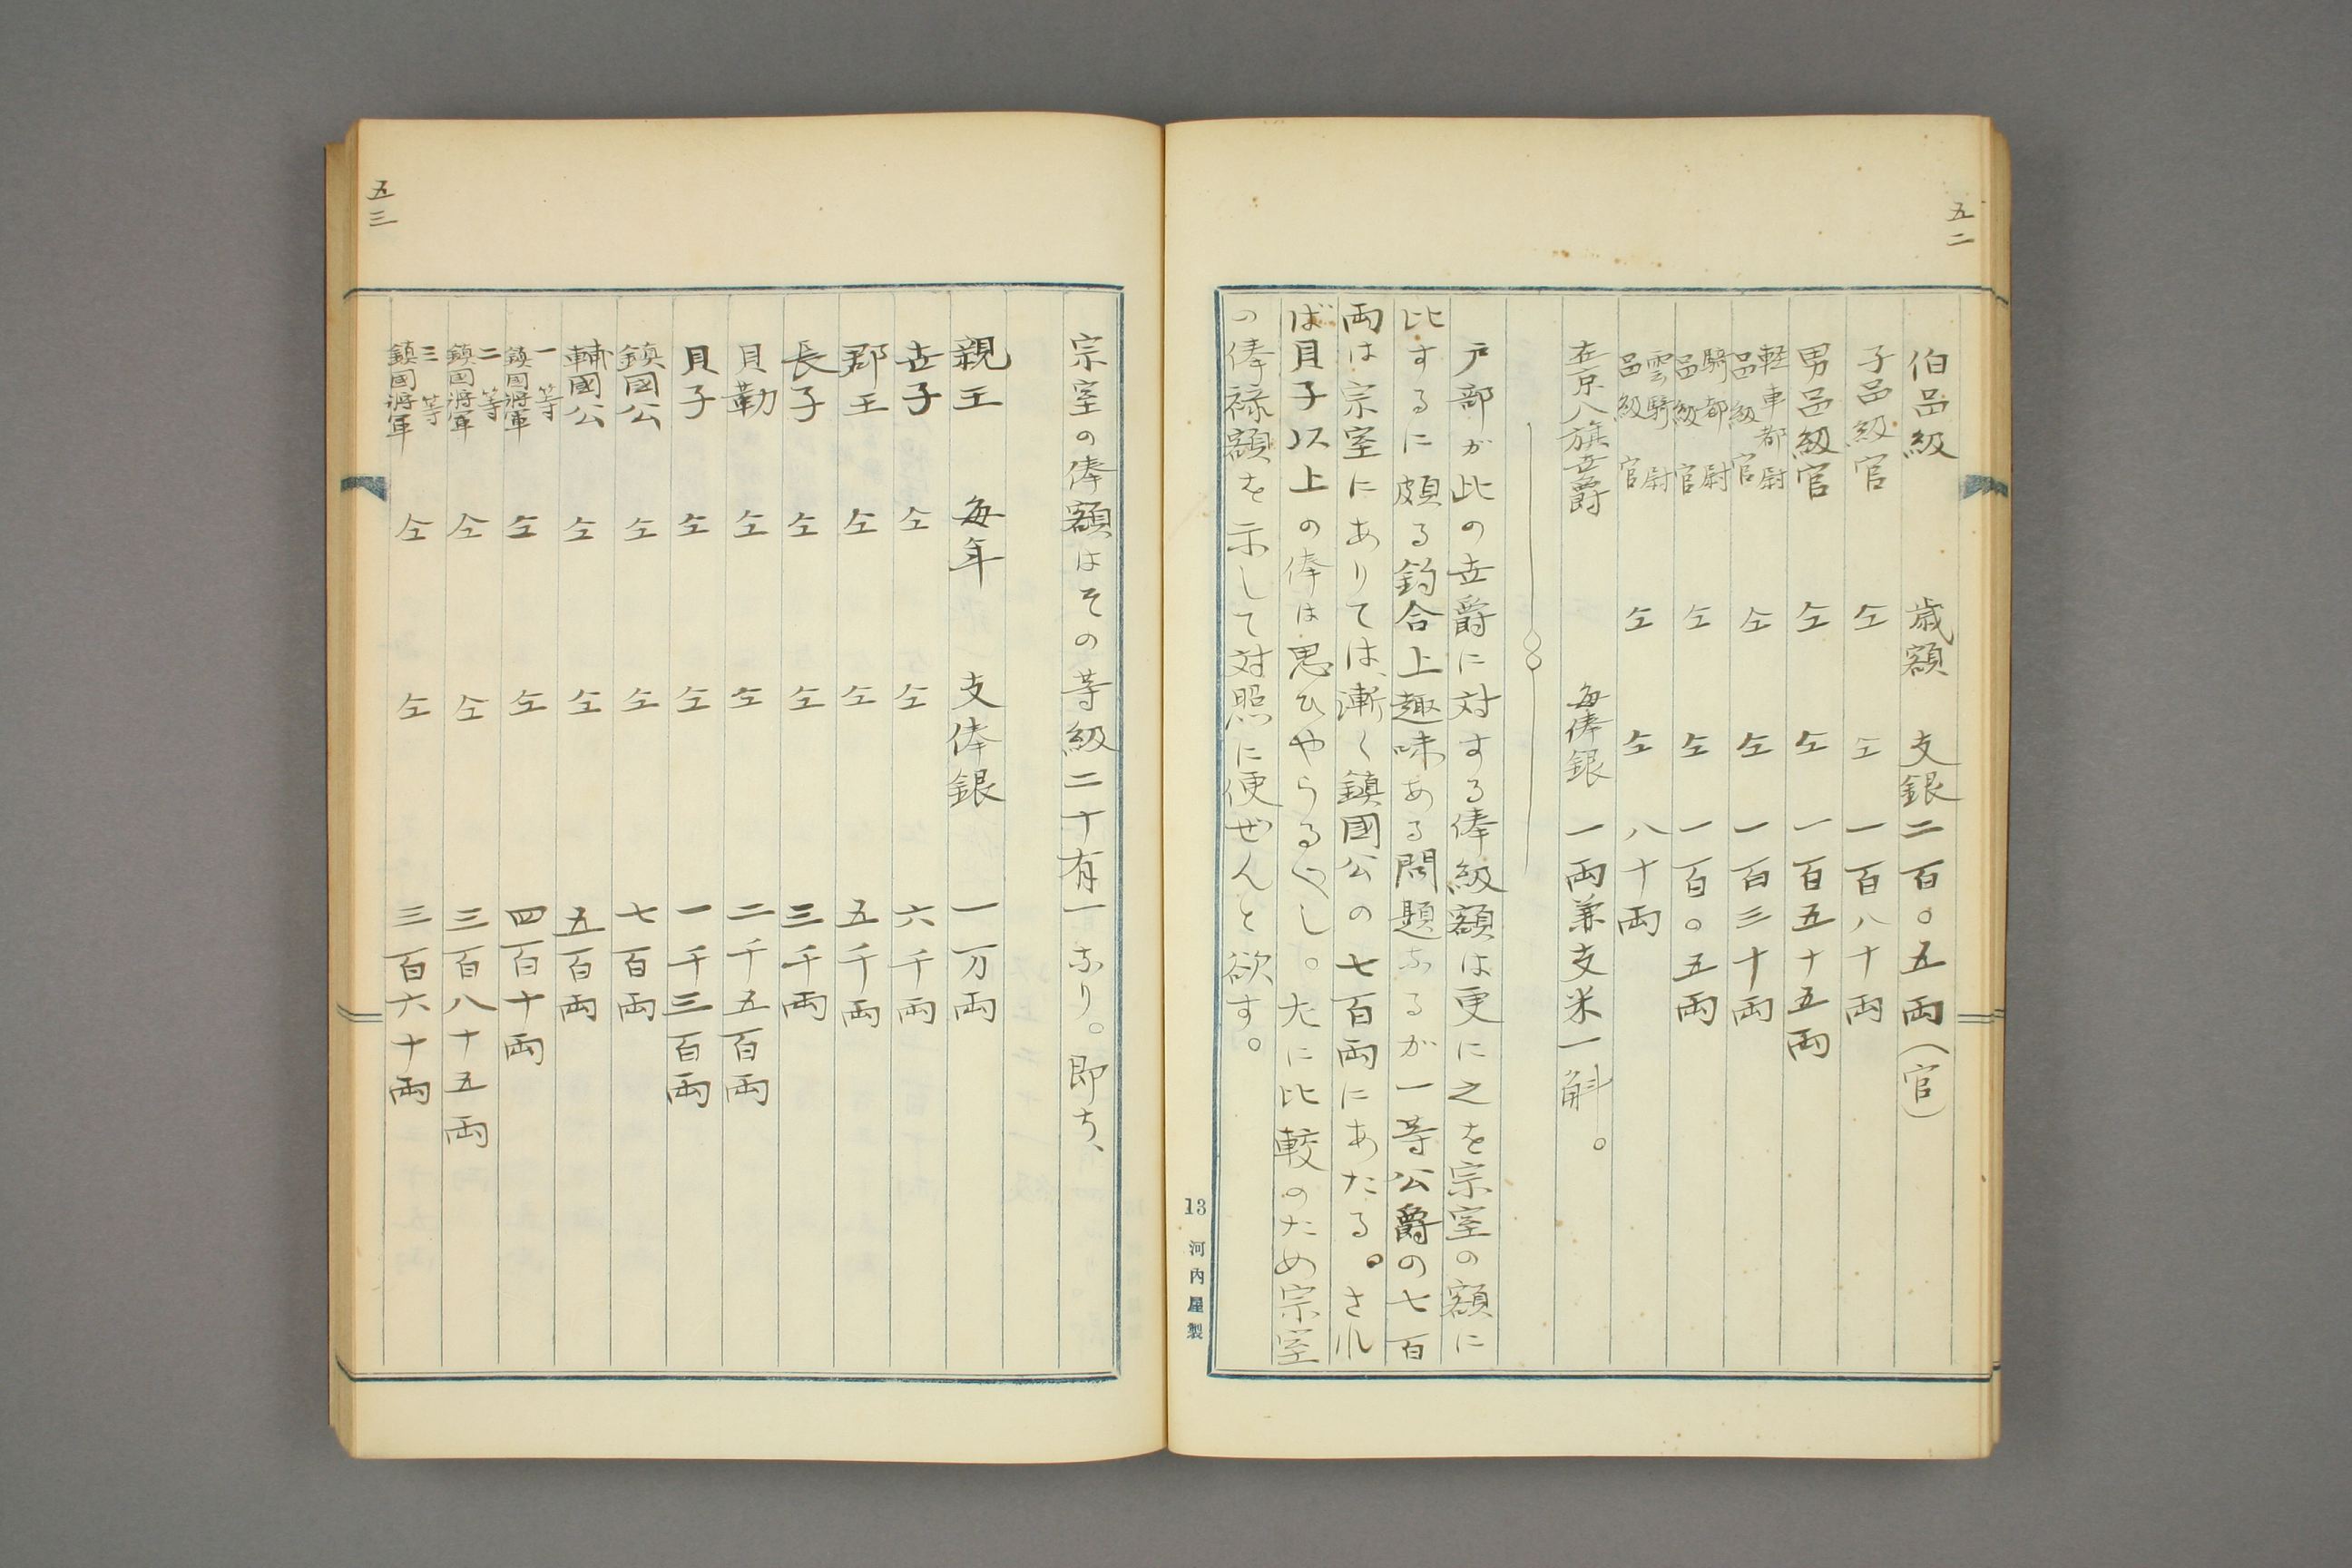 五二
伯邑級　歳額　支銀二百〇五両(官)
子邑級官　仝　仝　一百八十両
男邑級官　仝　仝　一百五十五両
軽車都尉
邑級官　仝　仝　一百三十両
騎都尉
邑級官　仝　仝　一百〇五両
雲騎尉
邑級官　仝　仝　八十両
在京八旗世爵　毎俸銀　一両兼支米一斛。
戸部が此の世爵に対する俸級額は更に之を宗室の額に
比するに頗る釣合上趣味ある問題なるが一等公爵の七百
両は宗室にありては、漸く鎮國公の七百両にあたる。され
ば貝子以上の俸は思ひやらるべし。左に比較のため宗室
の俸禄額を示して対照に便ぜんと欲す。
13 河内屋製
宗室の俸額はその等級二十有一なり。即ち、
親王　毎年　支俸銀　一万両
世子　仝　仝　六千両
郡王　仝　仝　五千両
長子　仝　仝　三千両
貝勒　仝　仝　二千五百両
貝子　仝　仝　一千三百両
鎮國公　仝　仝　七百両
輔國公　仝　仝　五百両
一等
鎮国将軍　仝　仝　四百十両
二等
鎮国将軍　仝　仝　三百八十五両
三等
鎮国将軍　仝　仝　三百六十両
五三